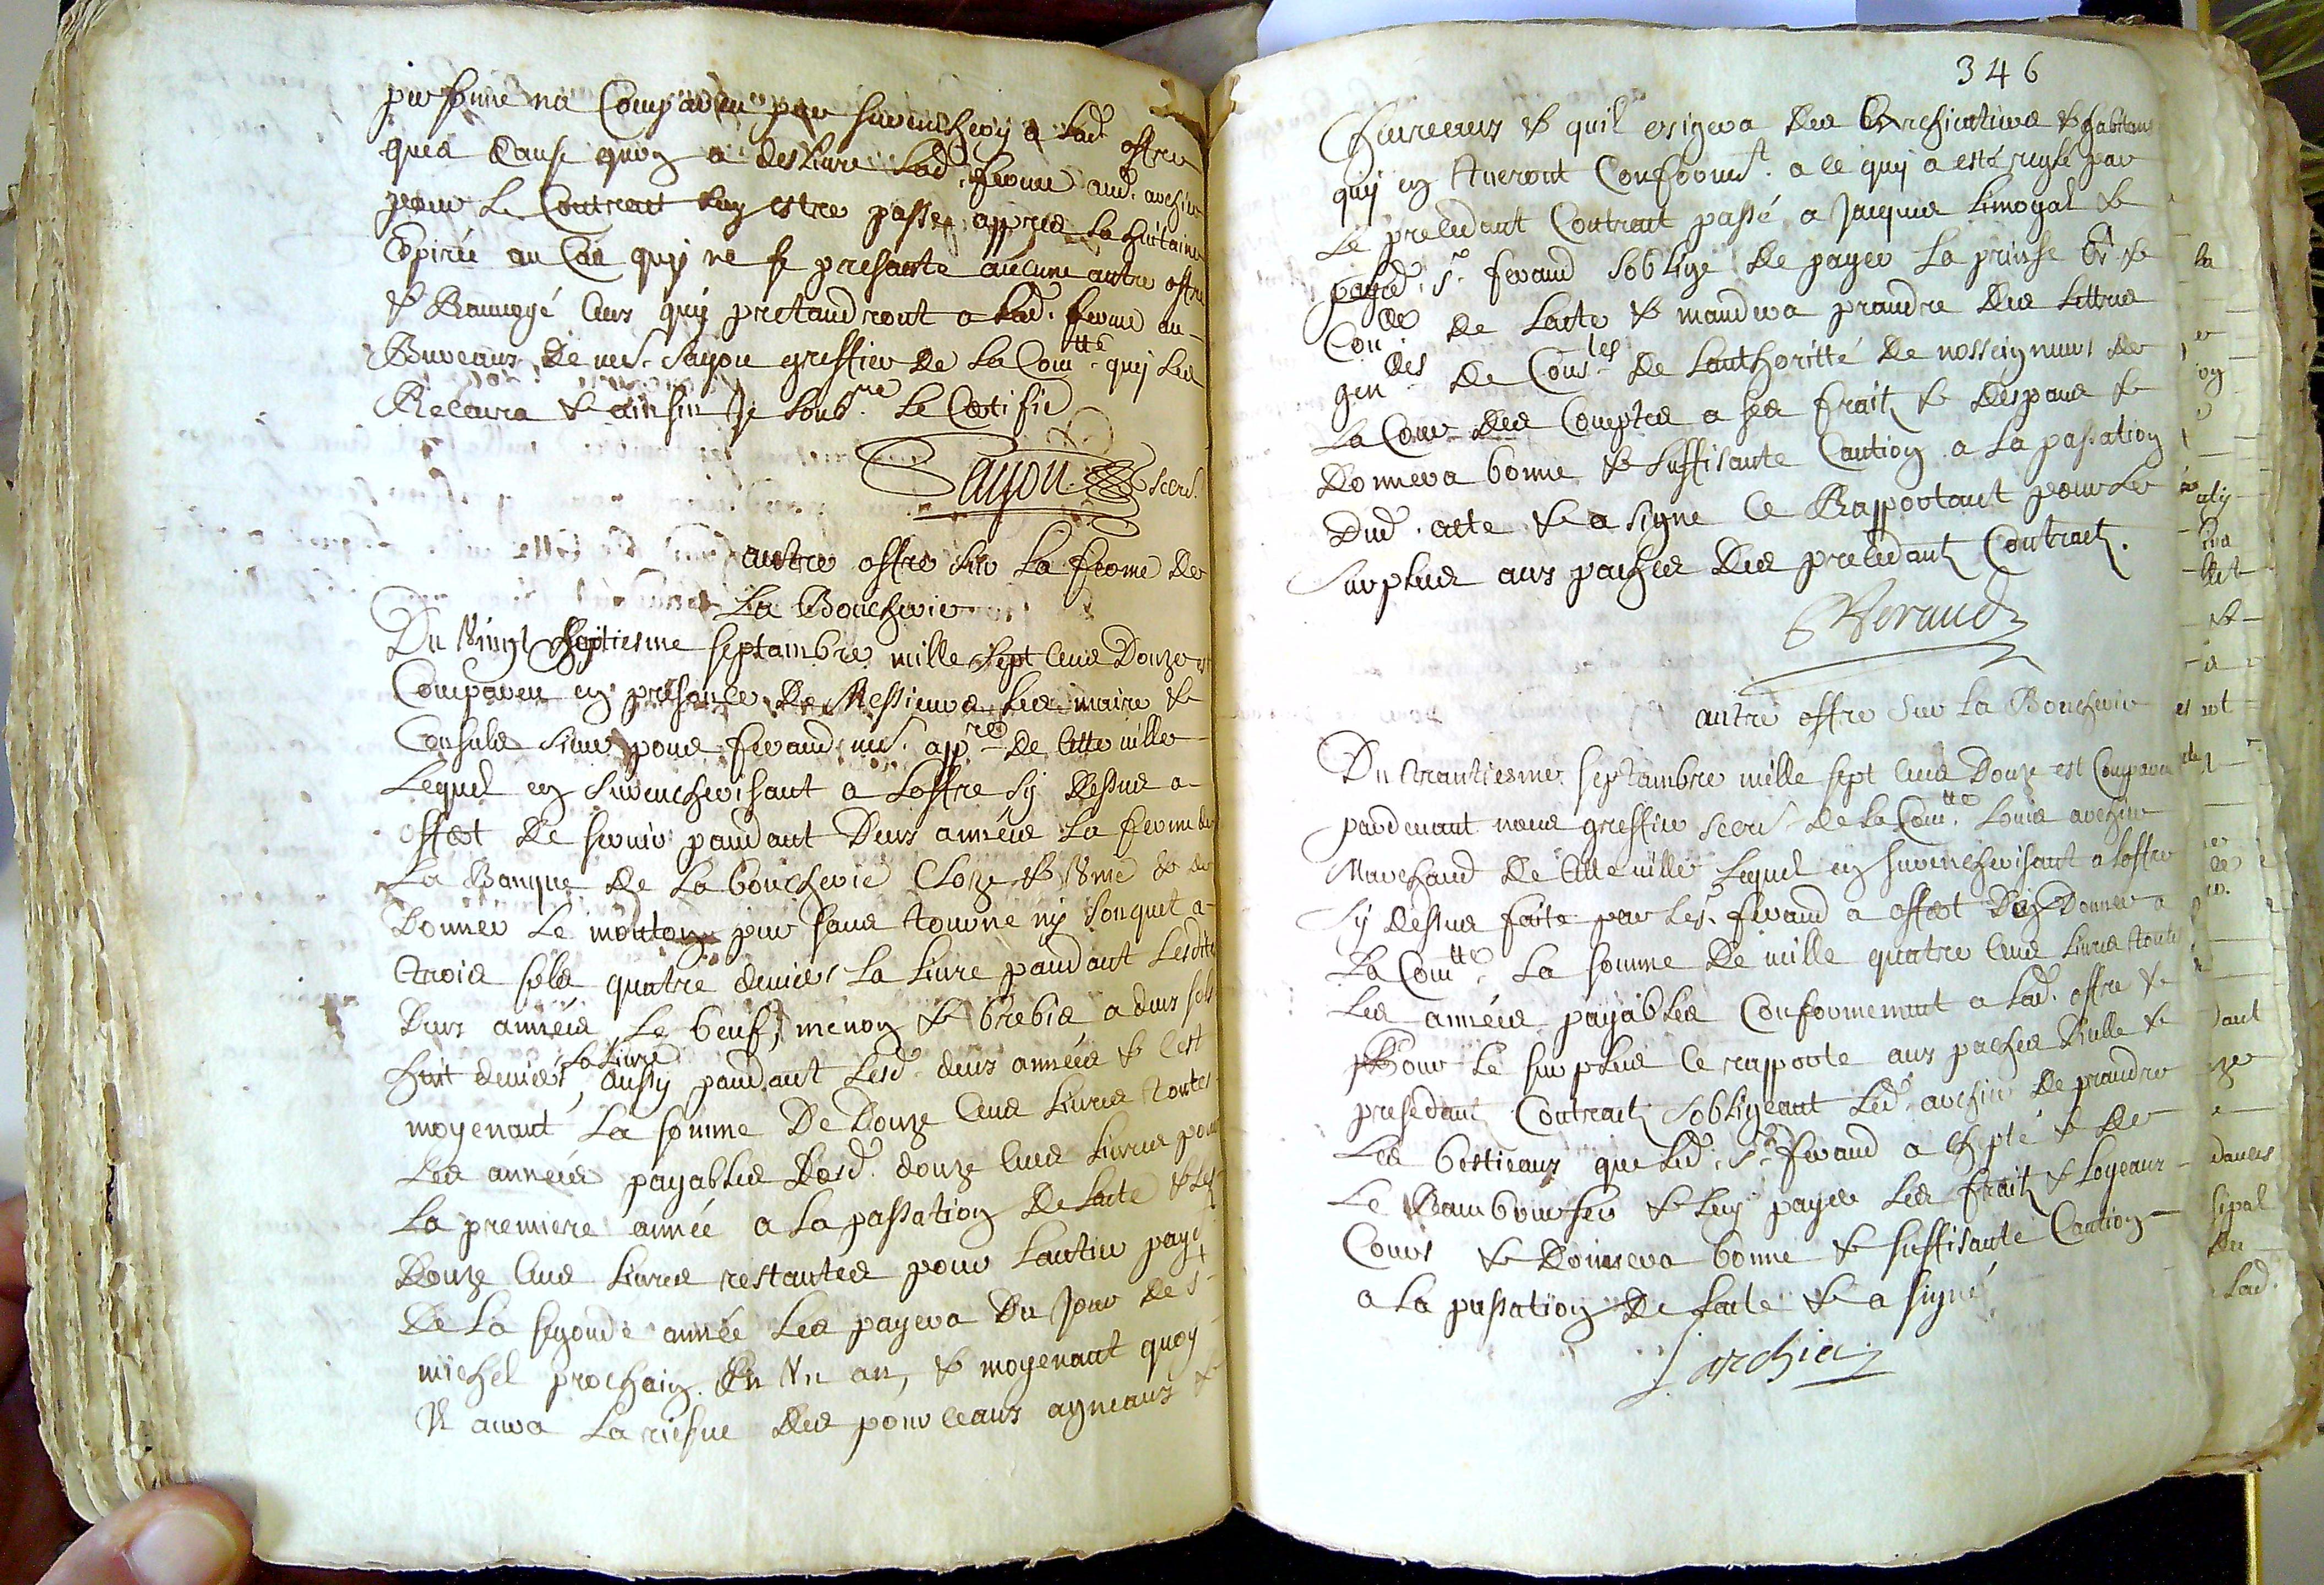 personne na Comparu pour surencherir a lad offre
ques Cause quoy a desliure lad. ferme aud. archier
pour Le Contract luy estre passe appres la huitaine
Expirée au Cas quy ne se presante aucune autre offre
& Ranuoyé Ceus quy pretandront a lad. ferme au
Bureaux de me. Sayou greffier de la Com.tté quy les
Receura & ainsin Je soub.né le Certifie
Sayou secre.
autre offre sur La ferme de
La Boucherie
Du Vingt septiesme septambre mille sept Cens Douze est
Comparu en presance de Messieurs les maire &
Consuls sieur pons feraud me. app.re de cette ville
Lequel en surencherisant a Loffre sy dessus a
offert de seruir pandant Deux années la ferme de
La Banque de la boucherie Close & Vme & de
Donner Le mouton pur sans tourne ny souquet a
trois sols quatre deniers La Liure pandant Lesdites
Deus années, Le beuf, menon & brebis a deus sols
huit deniers la Liure, aussy pandant Lesd. deux années & Cest
moyenant La somme De Douze Cens Liures toutes
Les années payables Lesd. douze Cens Liures pour
La premiere année a La passation de Lacte & Les
Douze Cens Liures restantes pour Lantier paye.t
De La segonde année Les payera Du Jour de s.t
michel prochain En Vn an, & moyenant quoy
Il aura La riesue des pourceaux agneaux &
346
Cheureaux & quil exigera des particuliers & habitans
quy en tueront Conform.t a ce quy a esté regle par
Le precedant Contract passé a Jacques Limogal &
payé.d. s.r feraud soblige de payer La prinse &
Con.de de Lacte & mandera prandre des Lettres
gen.des de Cons.les de Lauthoritté de nosseigneurs de
La Cour des Comptes a ses frait & despans &
Donnera bonne & suffisante Caution a La passation
Dud. acte & a signe Ce Rapportant pour Le
surplus aux paches des precedant Contract.
Feraud
autre offre sur La Boucherie
Du trantiesme septambre mille sept Cens Douze est Comparu
pardeuant nous greffier secre. de la Com.tté Louis archier
Marchand de Cette ville Lequel en surencherisant a Loffre
sy dessus faite par Le s.r feraud a offert Donner a
La Com.tté La somme De mille quatre Cens Liures toutes
Les années payables Conformemant a lad. offre &
Pour Le surplus Ce rapporte aux paches dicelle &
presedant Contract sobligeant Led. archier de prandre
Les bestieaux que Led. s.r feraud a & de
Le Ramboursser & Luy payer Les frait & Loyeaux
Cours & Donnera bonne & suffisante Caution
a La passation De Lacte & a signé
L archier